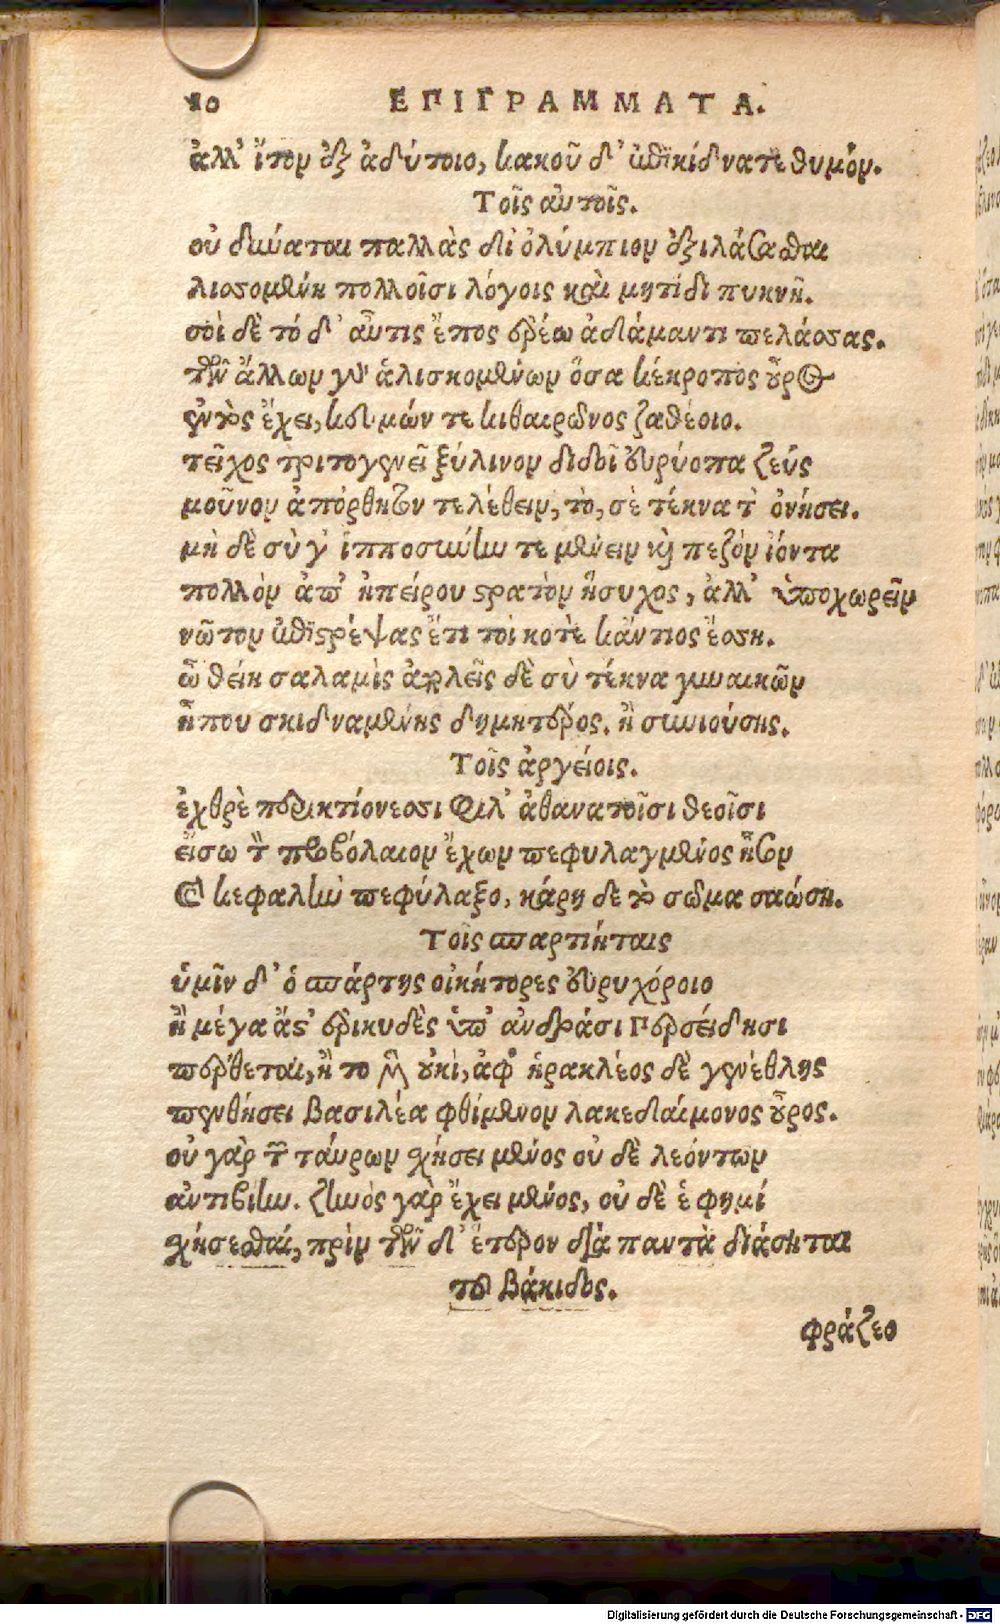 10 ΕΠΙΓΡΑΜΜΑΤΑ.
ἀλλ' ἴτον ἐξ ἀδύτοιο, κακοῦ δ' ἐπικίδνατε θυμόν.
Τοῖς αὐτοῖς.
οὐ δύναται παλλὰς δί ὀλύμπιον ἐξιλάσασθαι
λισσομένη πολλοῖσι λόγοις καὶ μητίδι πυκνῇ.
σοὶ δὲ τό δ' αὖτις ἔπος ἐρέω ἀδάμαντι πελάσσας.
τῶν ἄλλων γὰρ ἁλισκομένων ὅσα κέκροπος οὖρος
ἐντὸς ἔχει, κευθμών τε κιθαιρῶνος ζαθέοιο.
τεῖχος τριτογενεῖ ξύλινον διδοῖ εὐρύοπα ζεύς
μοῦνον ἀπόρθητον τελέθειν, τὸ, σὲ τέκνα τ' ὀνήσει.
μὴ δὲ σὺ γ' ἱπποσύνην τε μένειν καὶ πεζὸν ἰόντα
πολλὸν ἀπ' ἠπείρου στρατὸν ἥσυχος, ἀλλ' ὑποχωρεῖν
νῶτον ἐπιστρέψας ἔτι τοὶ κοτὲ κἄντιος ἔσση.
ὦ θείη σαλαμὶς ἀπολεῖς δὲ σὺ τέκνα γυναικῶν
ἤπου σκιδναμένης δημητέρος. ἢ συνιούσης.
Τοῖς ἀργείοις.
ἐχθρὲ περικτίονεσσι φιλ' ἀθανατοῖσι θεοῖσι
εἴσω τὸν προβόλαιον ἔχων πεφυλαγμένος ἧσον
καὶ κεφαλὴν πεφύλαξο, κάρη δὲ τὸ σῶμα σαώσῃ.
Τοῖς σπαρτιήταις
ὑμῖν δ' ὁ σπάρτης οἰκήτορες εὐρυχόροιο
ἢ μέγα ἄστ' ἐρικυδὲς ὑπ' ἀνδράσι Περσείδησι
πέρθεται, ἢ το μὲν οὐκὶ, ἀφ' ἡρακλέος δὲ γενέθλης
πενθήσει βασιλέα φθίμενον λακεδαίμονος οὖρος.
οὐ γὰρ τὸν ταύρων σχήσει μένος οὐ δὲ λεόντων
ἀντιβίην. ζηνὸς γὰρ ἔχει μένος, οὐ δὲ ἑ φημί
σχήσεσθαι, πρὶν τῶν δ' ἕτερον διὰ παντὰ διάσηται
τοῦ βάκιδος.
φράζεο
Digitalisierung gefördert durch die Deutsche Forschungsgemeinschaft - DFG